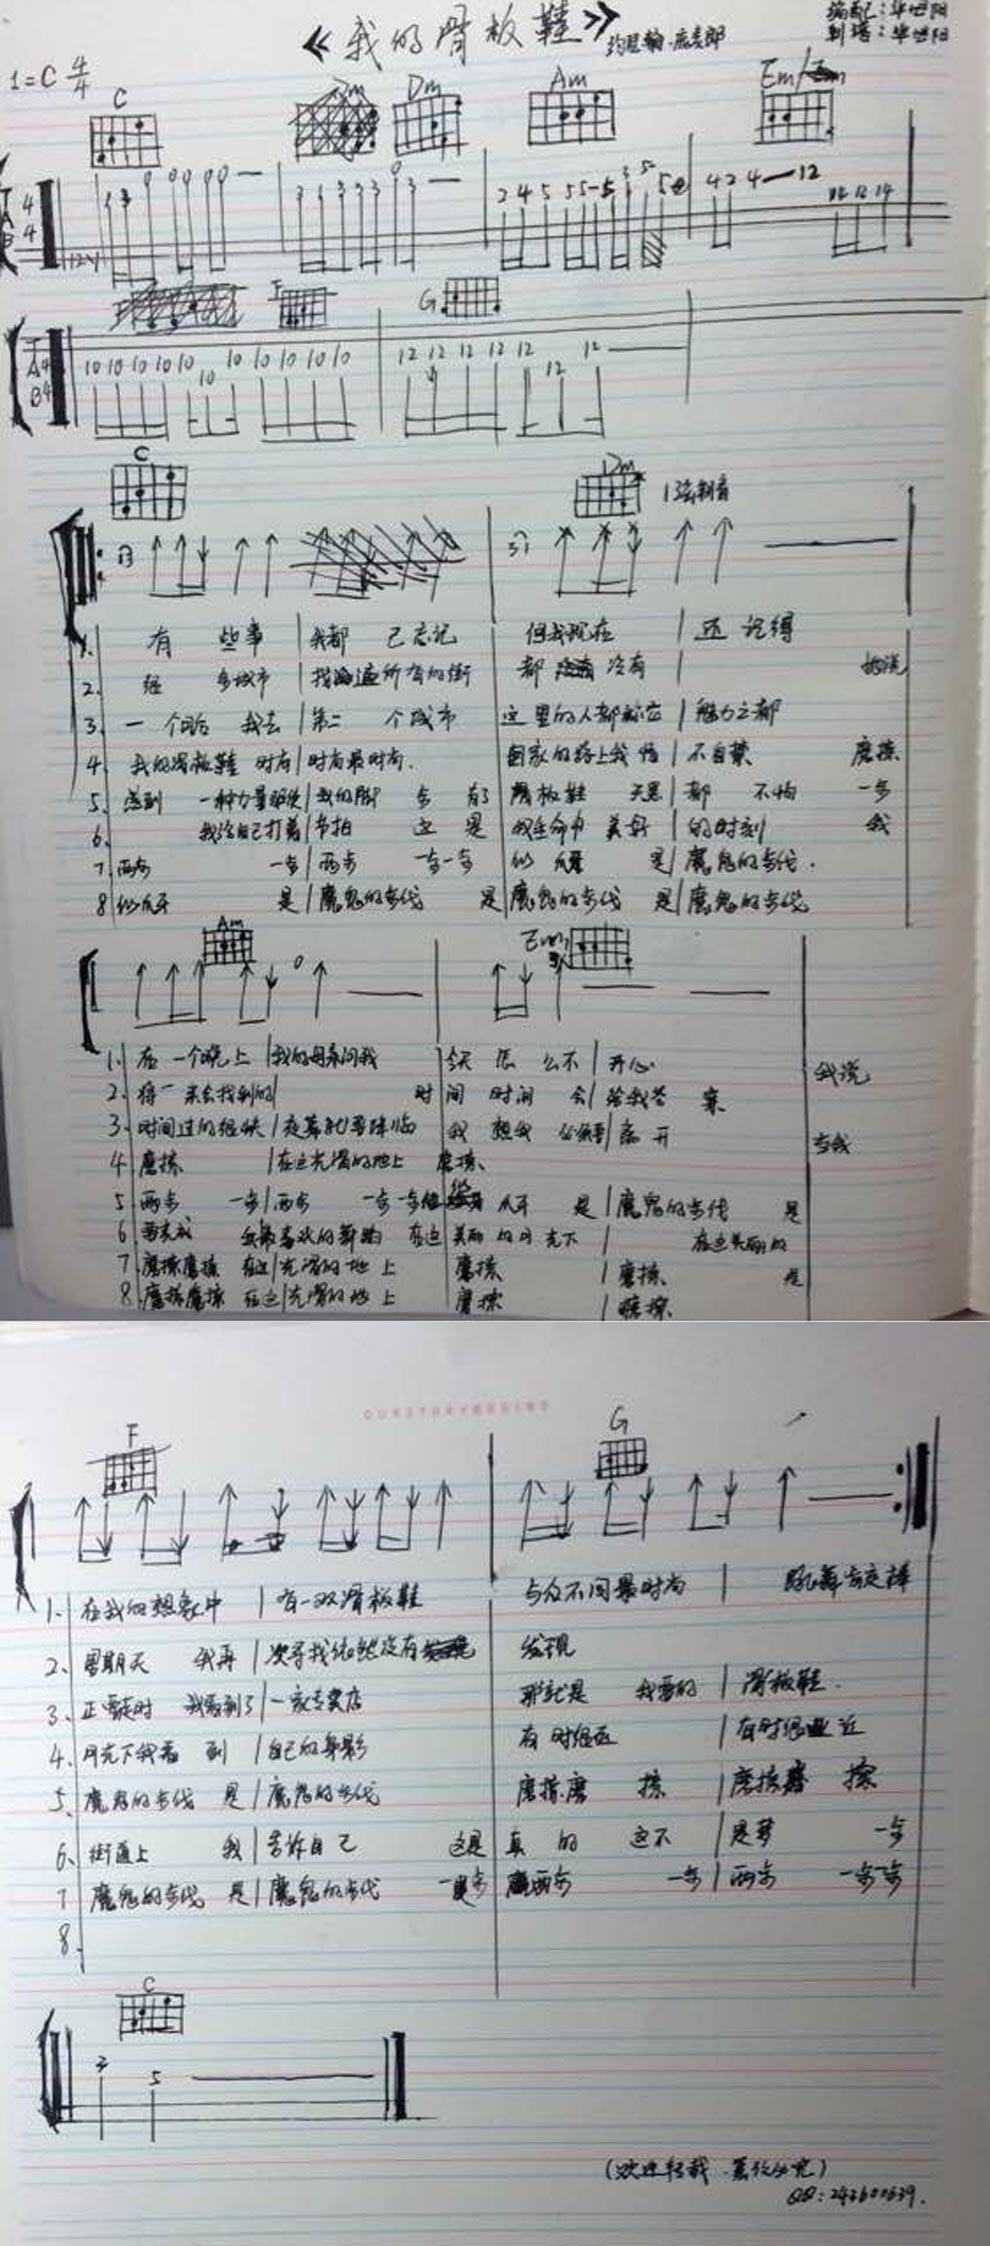 《我的滑板鞋》约瑟翰·庞麦郎
编配:华世阳
制谱:华世阳
1=C 4/4
C Dm Am Em
T A B 4 4
F G
T A B 4 4
10 10 10 10 10 10 10 10 10 10 10 12 12 12 12 12 12 12
C Dm
1. 有 些事 | 我都 已忘记 但我现在 | 还 记得
2. 多城市 | 找遍所有的街 都 没有 |
3. 一 个 我去 | 第二 个城市 这里的人都称它 | 魅力之都
4. 我的滑板鞋 时尚 | 时尚最时尚. 回家的路上我 | 不自禁 摩擦
5. 感到 一种力量驱使 | 我的脚 有了 滑板鞋 天黑 | 都 不怕 一步
6. 我给自己打着 | 节拍 这 是 我生命中 美好 | 的时刻 我
7. 两步 一步 | 两步 一步一步 似爪牙 是 | 魔鬼的步伐.
8. 似爪牙 是 | 魔鬼的步伐 是 | 魔鬼的步伐 是 | 魔鬼的步伐
Am Em
1. 在 一个晚上 | 我的母亲问我 今天 怎 么不 | 开心 我说
2. 将 来会找到的 | 时 间 时间 会 | 给我答 案
3. 时间过的很快 | 夜幕就要降临 我 想我 必须要 | 离 开 当我
4. 摩擦 | 在这光滑的地上 摩擦、
5. 两步 一步 | 两步 一步 一步 爪牙 是 | 魔鬼的步伐 是
6. 要完成 最喜欢的舞蹈 在这 美丽 的月 光下 | 在这美丽的
7. 摩擦摩擦 在这 | 光滑的 地 上 摩擦 | 摩擦、 是
8. 摩擦摩擦 在这 | 光滑的 地 上 摩擦 | 摩擦、
F G
1. 在我的想象中 | 有一双滑板鞋 与众不同最时尚 | 跳舞肯定棒
2. 星期天 我再 | 次寻找依然没有 发现
3. 正要走时 我看到了 | 一家专卖店 那就是 我要的 | 滑板鞋.
4. 月光下我看 到 | 自己的身影 有时很远 | 有时很近
5. 魔鬼的步伐 是 | 魔鬼的步伐 摩擦摩 擦 | 摩擦 擦
6. 街道上 我 | 告诉自己 这是 真 的 这不 | 是梦 一步
7 魔鬼的步伐 是 | 魔鬼的步伐 一步 两步 一步 | 两步 一步一步
8.
C
3 5
(欢迎转载
QQ:243600639.